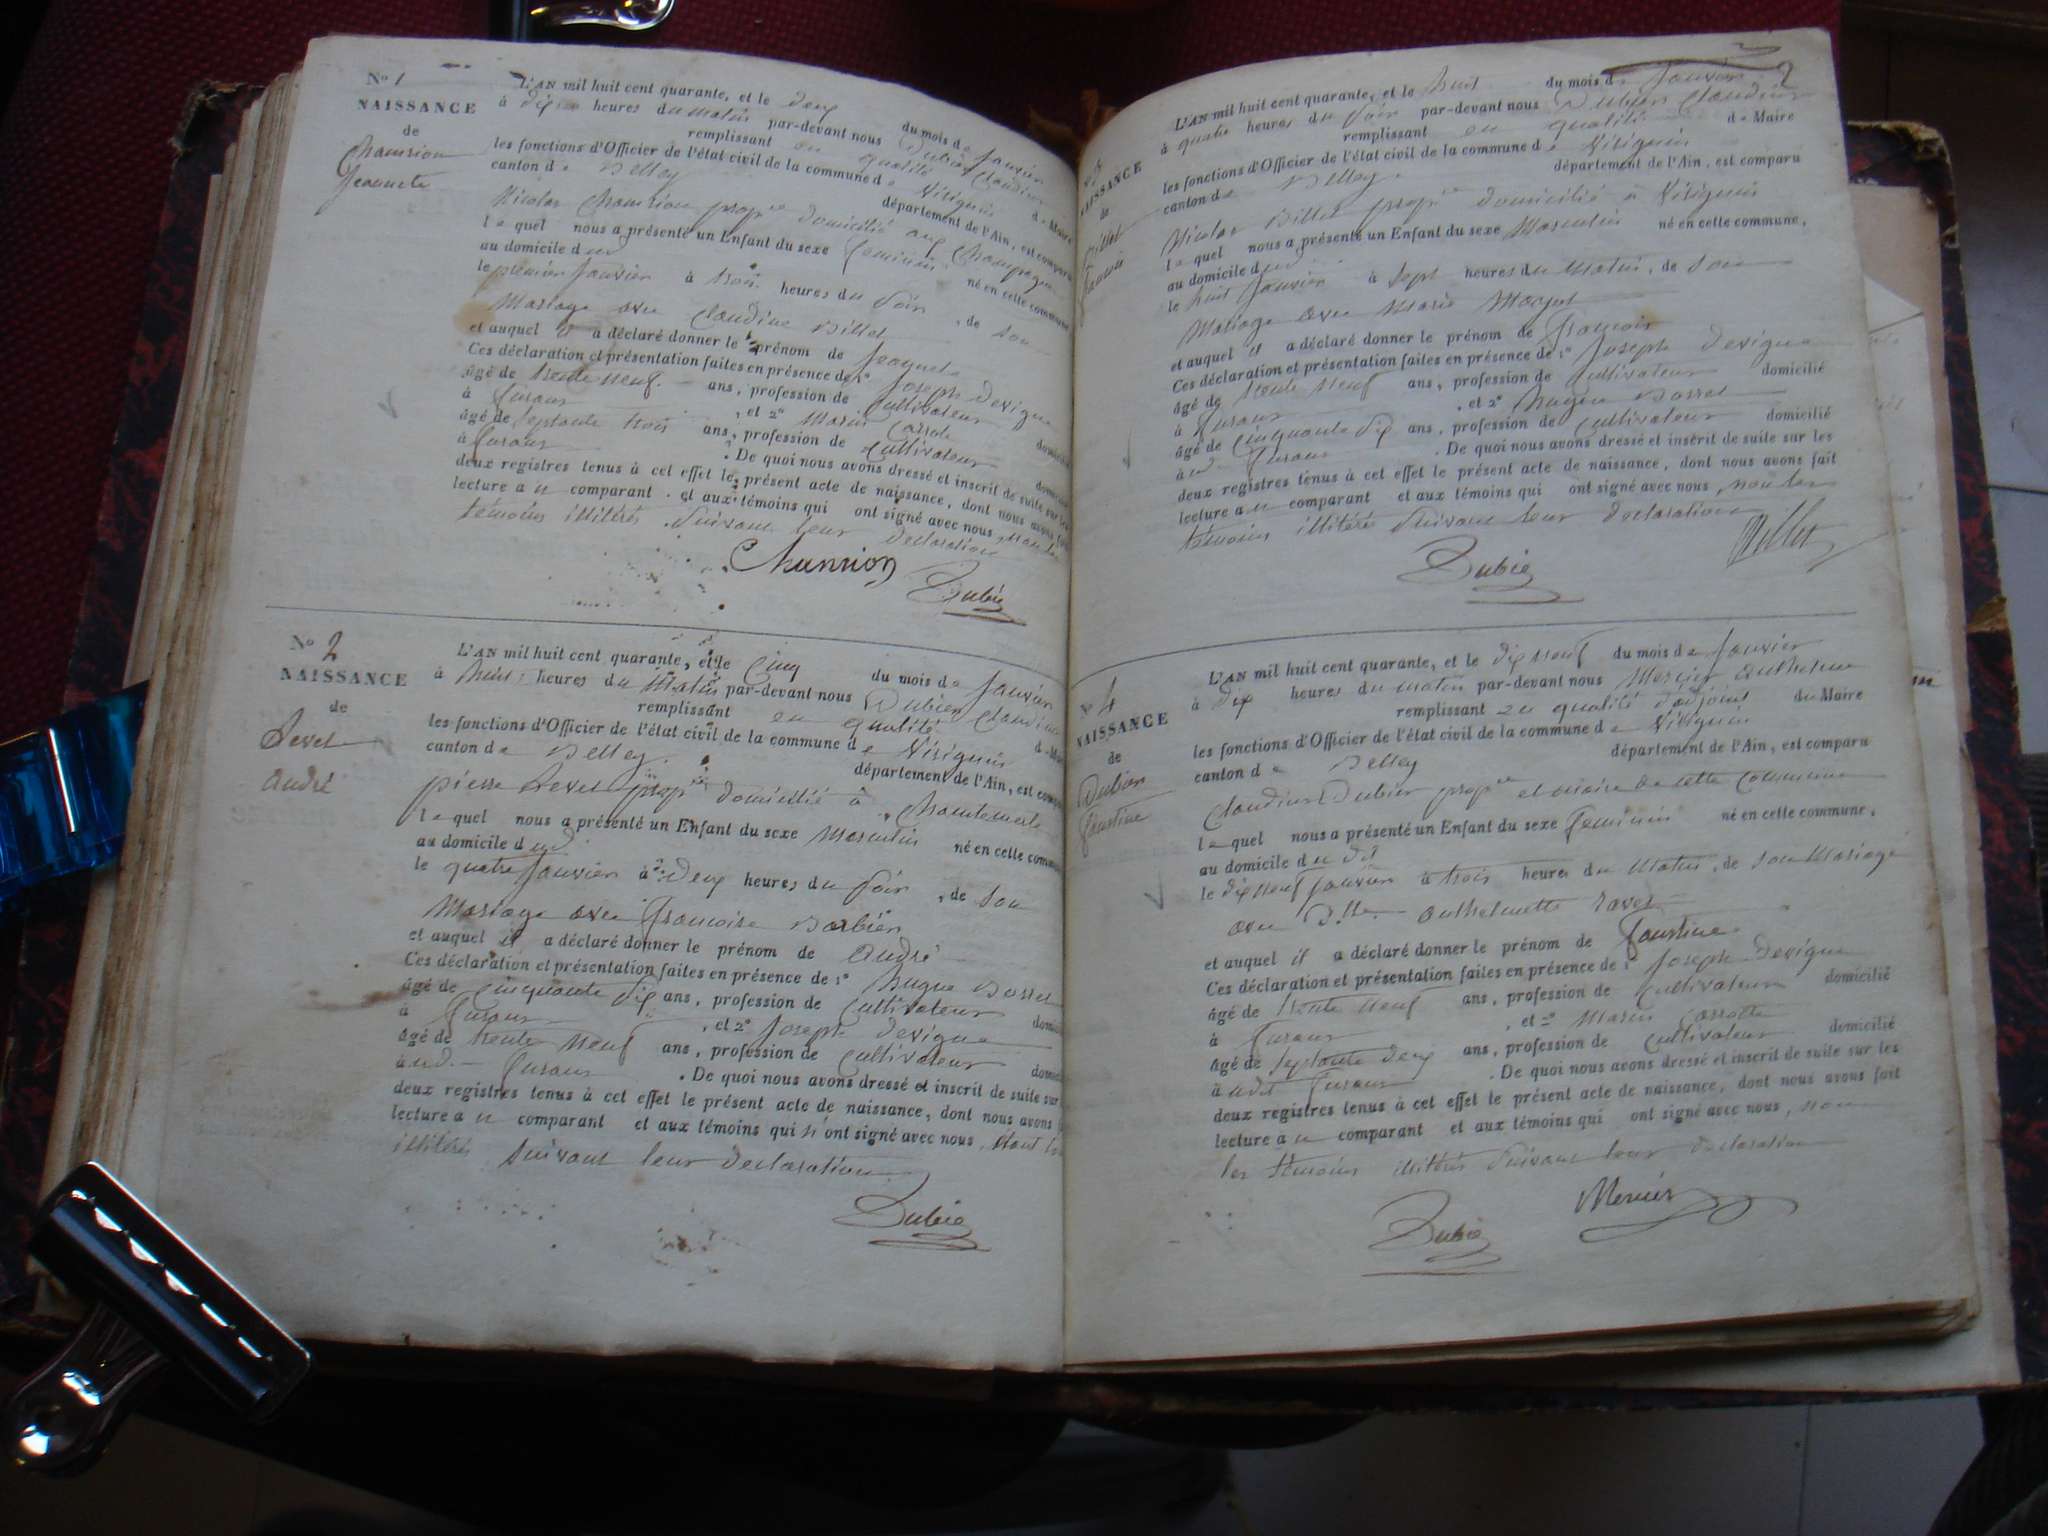 No 1
NAISSANCE
de
Chamrion
Jeannete
L'AN mil huit cent quarante, et le deux du mois de Janvier
à dix heures du matin par-devant nous Dubier Claudius
remplissant en qualité de Maire
les fonctions d'Officier de l'état civil de la commune de Virignin
canton de Belley département de l'Ain, est comparu
Nicolas Chamrion prop.re domicilié
le quel nous a présenté un Enfant du sexe féminin né en cette commune
au domicile dud
le premier Janvier à trois heures du soir, de son
Mariage avec Claudine Billet
et auquel il a déclaré donner le prénom de
Ces déclaration et présentation faites en présence de 1º Joseph Devigne
âgé de trente neuf ans, profession de Cultivateur
à Cuzieu, et 2º Marin
âgé de septante trois ans, profession de Cultivateur
à. De quoi nous avons dressé et inscrit de suite sur les
deux registres tenus à cet effet le présent acte de naissance, dont nous avons fait
lecture au comparant et aux témoins qui ont signé avec nous, non les
témoins illitérés suivant leur déclaration
Chamrion
Dubie
No 2
NAISSANCE
de
Revet
André
L'AN mil huit cent quarante, et le cinq du mois de Janvier
à huit heures du matin par-devant nous Dubier Claudius
remplissant en qualité de
les fonctions d'Officier de l'état civil de la commune de Virignin
canton de Belley département de l'Ain, est comparu
pierre Revet prop.re domicilié à Chantemerle
le quel nous a présenté un Enfant du sexe Masculin né en cette commune
au domicile dud
le quatre Janvier à deux heures du soir, de son
Mariage avec Françoise Barbier
et auquel il a déclaré donner le prénom de André
Ces déclaration et présentation faites en présence de 1º Hugue
âgé de cinquante dix ans, profession de Cultivateur
à, et 2º Joseph Devigne
âgé de trente neuf ans, profession de Cultivateur
à ud. De quoi nous avons dressé et inscrit de suite sur
deux registres tenus à cet effet le présent acte de naissance, dont nous avons
lecture au comparant et aux témoins qui n'ont signé avec nous, étant
illitérés suivant leur déclaration
Dubie
2
NAISSANCE
de
Billet
L'AN mil huit cent quarante, et le huit du mois de Janvier
à quatre heures du soir par-devant nous Dubier Claudius
remplissant en qualité de Maire
les fonctions d'Officier de l'état civil de la commune de Virignin
canton de Belley département de l'Ain, est comparu
Nicolas Billet prop.re domicilié à Virignin
le quel nous a présenté un Enfant du sexe Masculin né en cette commune,
au domicile dud
le huit Janvier à sept heures du matin, de son
Mariage avec Marie
et auquel il a déclaré donner le prénom de François
Ces déclaration et présentation faites en présence de 1º Joseph Devigne
âgé de trente neuf ans, profession de Cultivateur domicilié
à, et 2º Hugue
âgé de cinquante dix ans, profession de Cultivateur domicilié
à ud. De quoi nous avons dressé et inscrit de suite sur les
deux registres tenus à cet effet le présent acte de naissance, dont nous avons fait
lecture au comparant et aux témoins qui ont signé avec nous, non les
témoins illitérés suivant leur déclaration
Billet
Dubie
No 4
NAISSANCE
de
Dubier
Faustine
L'AN mil huit cent quarante, et le dix neuf du mois de Janvier
à dix heures du matin par-devant nous Mercier Anthelme
remplissant en qualité d'adjoint du Maire
les fonctions d'Officier de l'état civil de la commune de Virignin
canton de Belley département de l'Ain, est comparu
Claudius Dubier prop.re et maire de cette commune
le quel nous a présenté un Enfant du sexe féminin né en cette commune,
au domicile du dit
le dix neuf Janvier à trois heures du matin, de son Mariage
avec D.lle Anthelmette Ravet
et auquel il a déclaré donner le prénom de Faustine
Ces déclaration et présentation faites en présence de 1º Joseph Devigne
âgé de trente neuf ans, profession de Cultivateur domicilié
à, et 2º Marin
âgé de septante deux ans, profession de Cultivateur domicilié
à udit. De quoi nous avons dressé et inscrit de suite sur les
deux registres tenus à cet effet le présent acte de naissance, dont nous avons fait
lecture au comparant et aux témoins qui ont signé avec nous, non
les témoins illitérés suivant leur déclaration
Mercier
Dubie